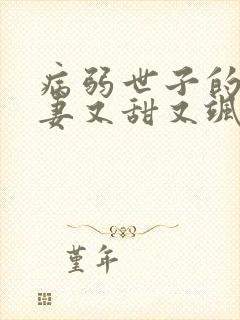 病弱世子的
妻又甜又飒
堇年